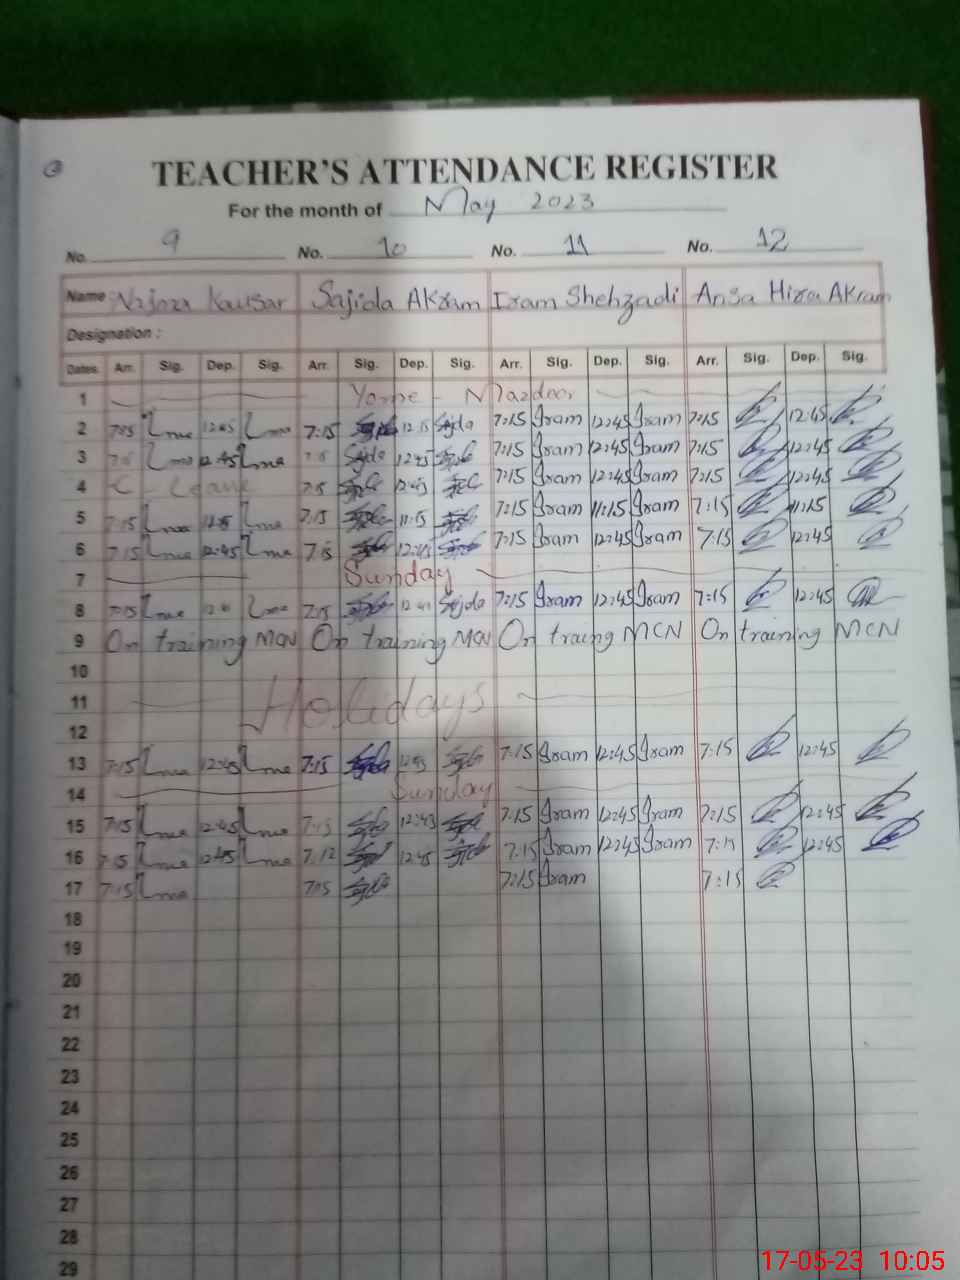 TEACHER'S ATTENDANCE REGISTER
For the month of May 2023
No. 9 No. 10 No. 11 No. 12
Name Najma Kausar Sajida Akram Iram Shehzadi Ansa Hira Akram
Designation :
Dates. Arr. Sig. Dep. Sig. Arr. Sig. Dep. Sig. Arr. Sig. Dep. Sig. Arr. Sig. Dep. Sig.
1 Yome Mazdoor
2 7:15 12:45 7:15 12:15 Sajda 7:15 Iram 12:45 Iram 7:15 12:45
3 12:45 Sajda 12:45 7:15 Iram 12:45 Iram 7:15 12:45
4 C - Leave 7:15 12:45 7:15 Iram 12:45 Iram 7:15 12:45
5 7:15 7:15 11:15 7:15 Iram 11:15 Iram 7:15 11:15
6 7:15 12:45 7:15 12:45 7:15 Iram 12:45 Iram 7:15 12:45
7 Sunday
8 7:15 7:15 Sajda 7:15 Iram 12:45 Iram 7:15 12:45
9 On training MCN On training MCN On traung MCN On training MCN
10
11 Holidays
12
13 7:15 12:45 7:15 7:15 Iram 12:45 Iram 7:15 12:45
14 Sunday
15 7:15 12:45 7:15 12:45 7:15 Iram 12:45 Iram 7:15 12:45
16 7:15 12:45 7:12 12:45 7:15 Iram 12:45 Iram 7:15 12:45
17 7:15 7:15 7:15 Iram 7:15
18
19
20
21
22
23
24
25
26
27
28
29
17-05-23 10:05